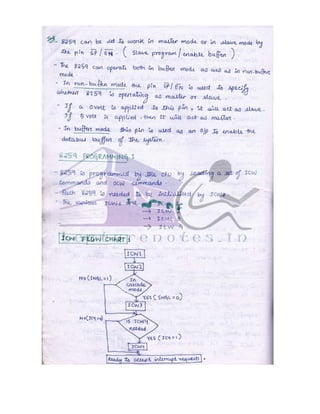 8259 can be set to work in master mode or in slave mode by
the pin SP/EN. (Slave program/enable buffer)
- The 8259 can operate both in buffer mode as well as in non-buffer
mode
- In non-buffer mode the pin SP/EN is used to specify
whether 8259 is operating as master or slave.
- If a 0 volt is applied to this pin, it will act as slave.
If 5 volt is applied then it will act as master.
- In buffer mode this pin is used as an o/p to enable the
databus buffers of the system.
8259 PROGRAMMING :
- 8259 is programmed by the CPU by loading a set of ICW
commands and OCW commands
- Each 8259 is needed to be initialized by ICWs
- The various ICWs are
→ ICW
→ ICW 4
ICW FLOWCHART :
ICW1
ICW2
NO (SNGL=1)
In cascade mode
YES (SNGL=0)
ICW3
NO (IC4=0)
is ICW4 needed
YES (IC4=1)
ICW4
Ready to accept interrupt requests.